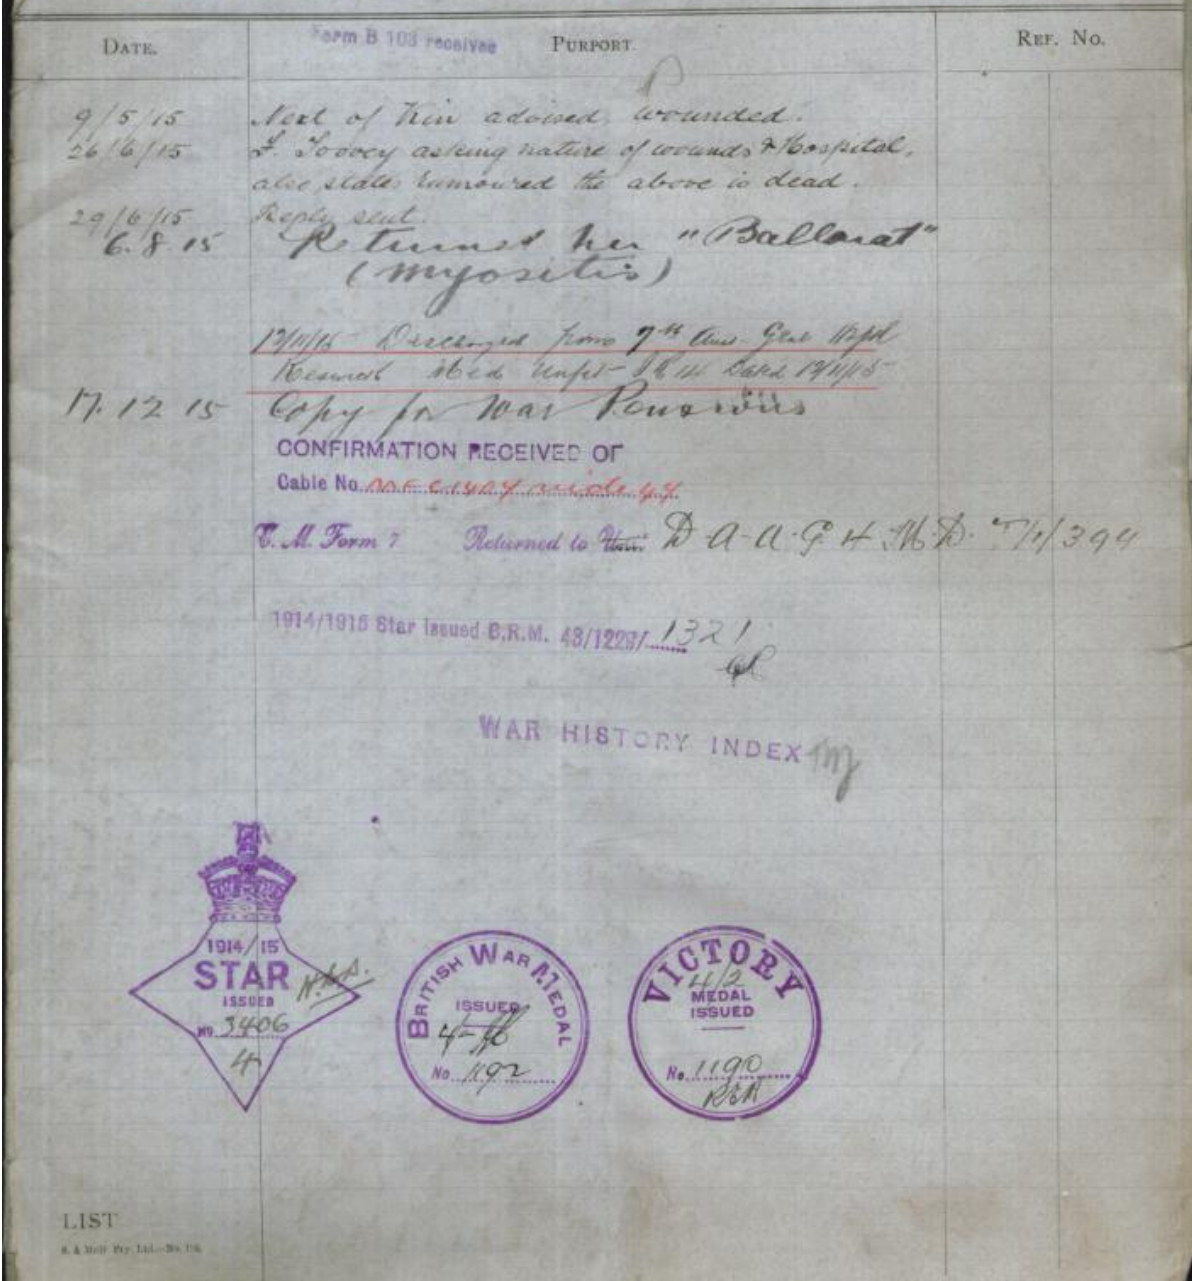 DATE.
Form B 103 received
PURPORT.
REF. No.
9/5/15 Next of Kin advised, wounded.
26/6/15 F. Toovey asking nature of wounds & Hospital,
also states rumoured the above is dead.
29/6/15 Reply sent.
6.8.15 Returned per "Ballarat"
(myositis)
12/11/15 Discharged from 7th Aus. Genl Hspl
Keswick Med Unfit Dated 12/11/15
17.12.15 Copy for War Pensions
CONFIRMATION RECEIVED OF
Cable No.
E. M. Form 7 Returned to D.A.A.G 4 M.D. 7/1/394
1914/1915 Star Issued B.R.M. 48/1229/ 1321
WAR HISTORY INDEX
1914/15
STAR
ISSUED
No. 3406
4
BRITISH WAR MEDAL
ISSUED
No. 1192
VICTORY
4/2
MEDAL
ISSUED
No. 1190
LIST